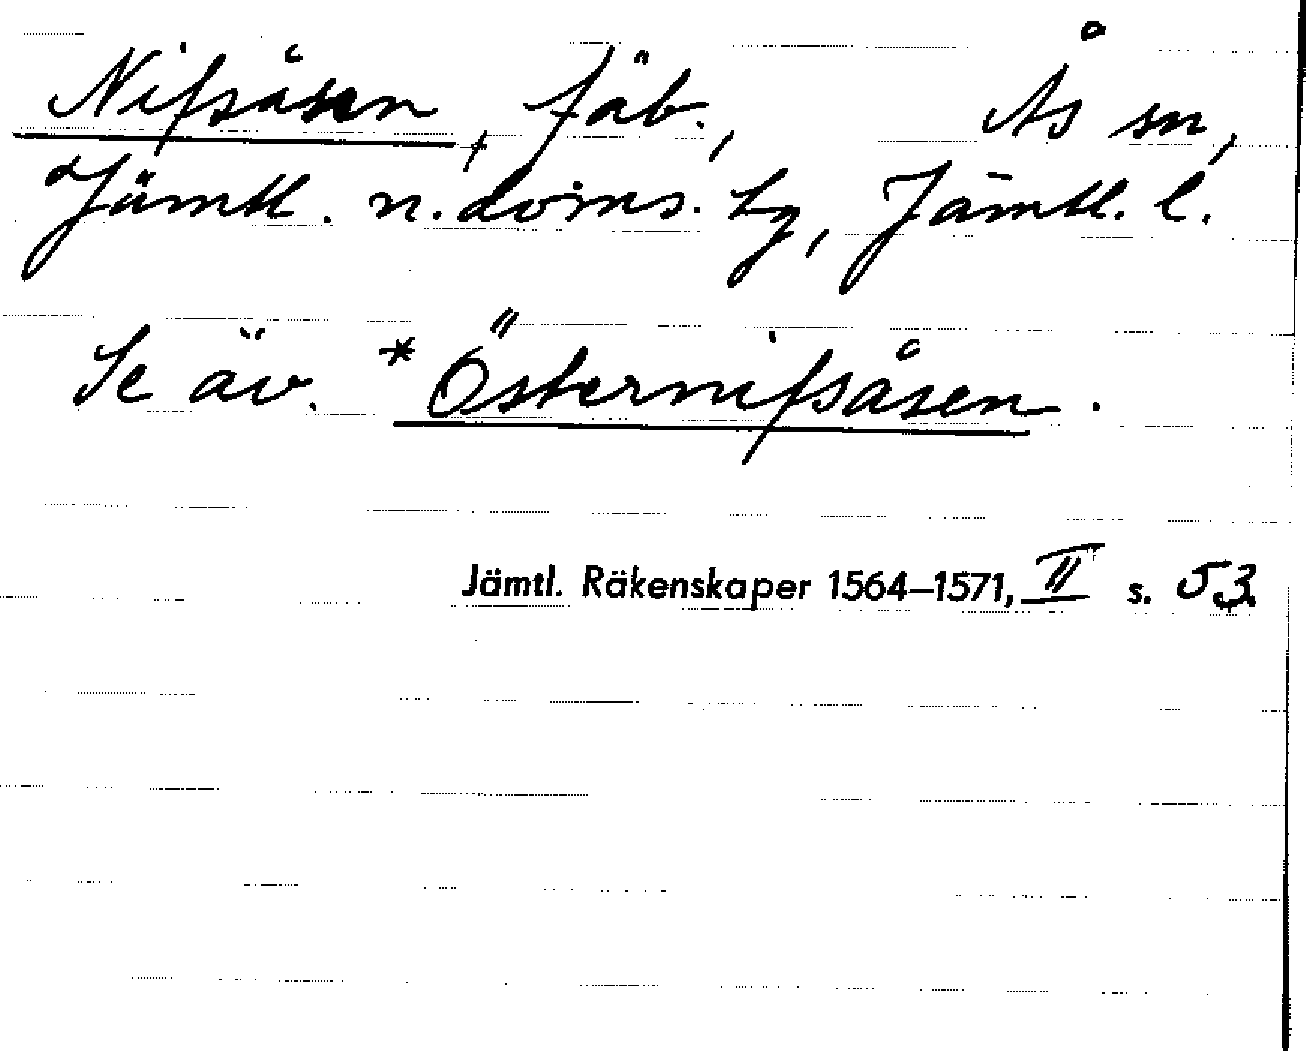 Nifsåsen, fäb., Ås sn,
Jämtl. n. doms. tg, Jämtl. l.
Se äv. *Östernifsåsen.
Jämtl. Räkenskaper 1564–1571, II s. 53.